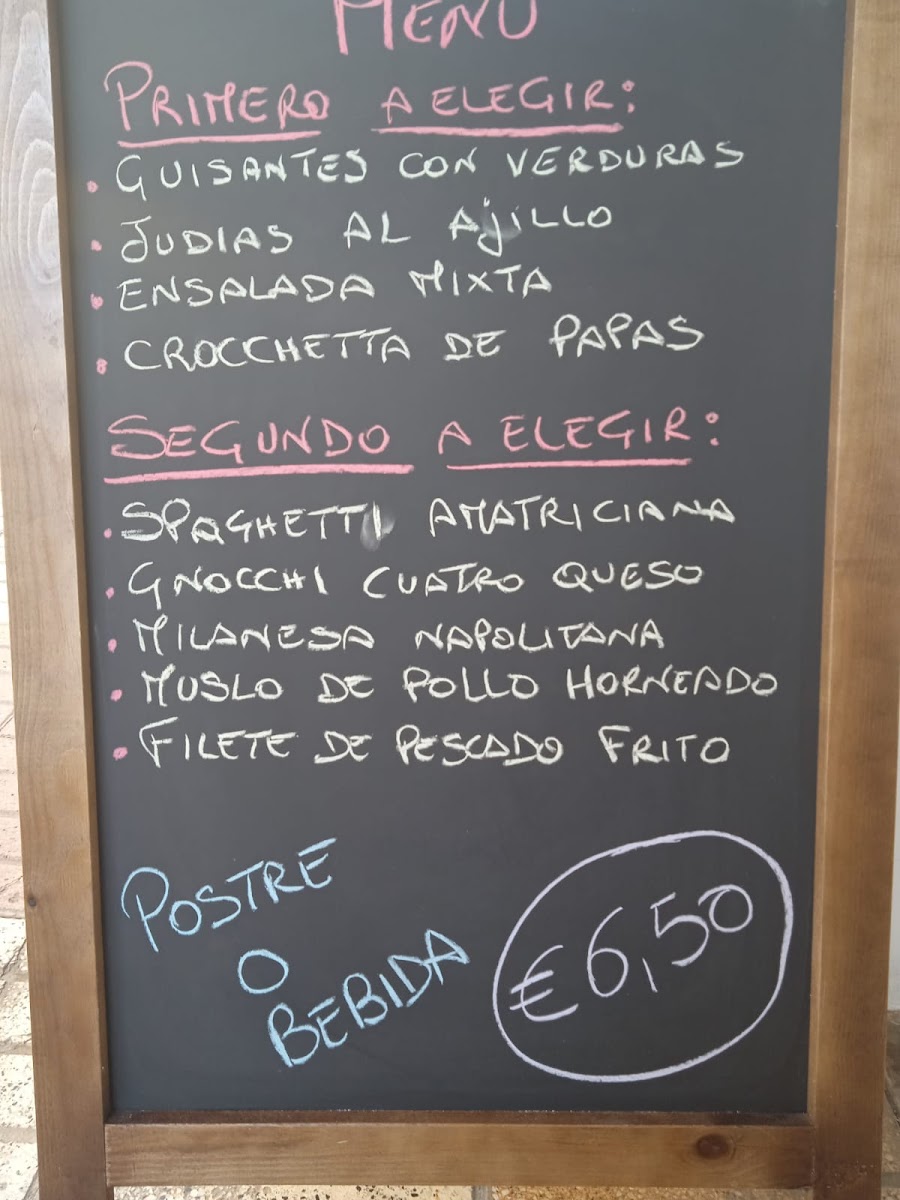 MENU
PRIMERO A ELEGIR:
• GUISANTES CON VERDURAS
• JUDIAS AL AJILLO
• ENSALADA MIXTA
• CROCCHETTA DE PAPAS
SEGUNDO A ELEGIR:
• SPAGHETTI AMATRICIANA
• GNOCCHI CUATRO QUESO
• MILANESA NAPOLITANA
• MUSLO DE POLLO HORNEADO
• FILETE DE PESCADO FRITO
POSTRE
O
BEBIDA
€6,50